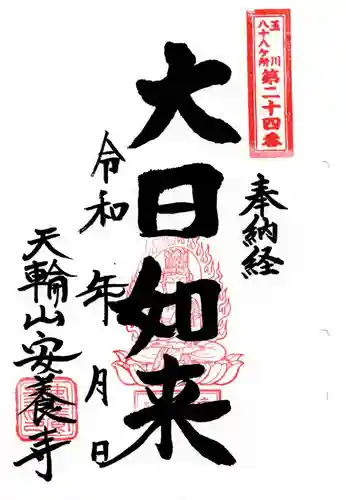 玉川
八十八ヶ所
第二十四番
奉納経
大日如来
令和 年 月 日
天輪山安養寺